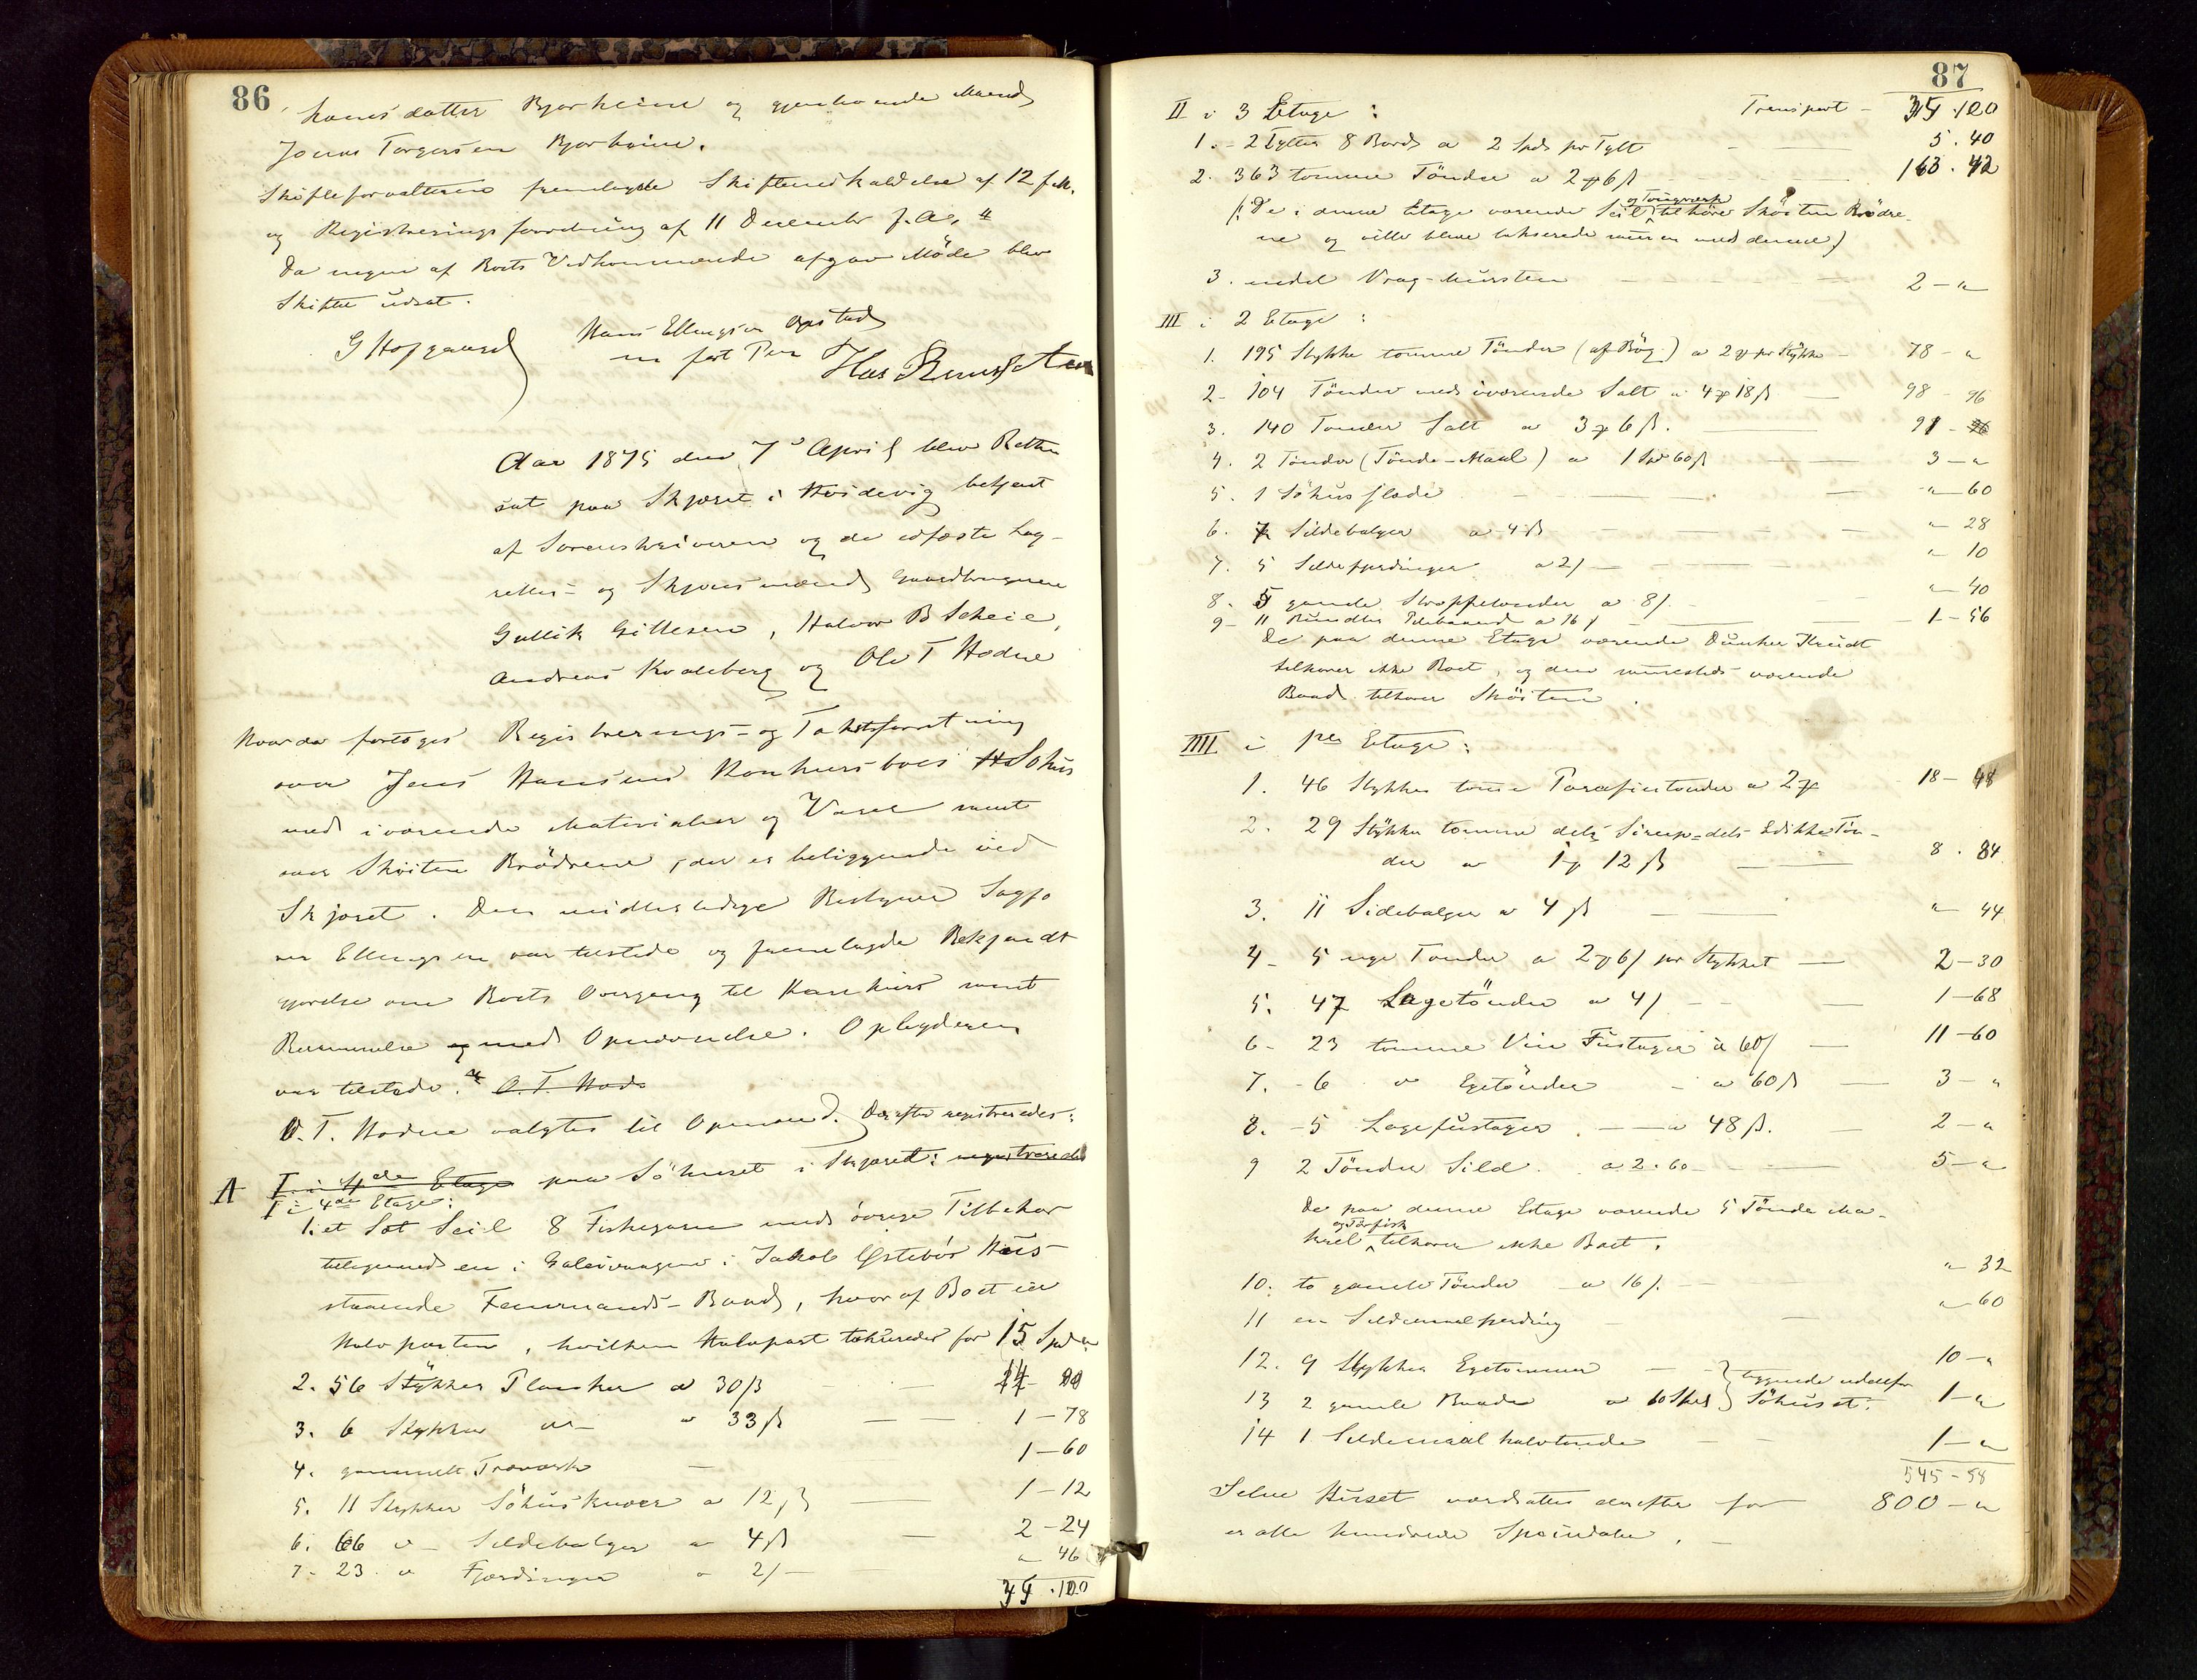 86
hansdatter Bjorheim og gjenlevende Mand
Jonas Torgersen Bjorheim.
Skifteforvalteren fremlagde Skifteindkaldelse af 12 f.M.
og Registreringsforretning af 11 December f.A.
Da ingen af Boets Vedkommende afgav Möde blev
Skiftet udsat.
G Hofgaard Hans Ellingsen Opstad
Aar 1875 den 7de April blev Retten
sat paa Skjæret i Hvidevig betjent
af Sorenskriveren og de edfæste Lag-
rettes- og Skjönsmænd Gaardbrugerne
Gullik Gillesen, Halvor B Scheie,
Andreas Kvaleberg og Ole T Hodne
hvorda foretoges Registrerings- og Takstforretning
over Jens Hansens Konkursboes Söhus
med iværende Materialier og Varer samt
over Sköiten Brödrene, der er beliggende ved
Skjæret. Den midlertidige Bestyrer Sagfö
rer Ellingsen var tilstede og fremlagde Bekjendt
gjørelse om Boets Overgang til Konkurs samt
Berammelse med Opnævnelse. Opbyderen
var tilstede. O. T. Hod
O. T. Hodne valgtes til Opmand. Derefter registreredes:
A I i 4de Etage paa Söhuset i Skjæret: registreredes
I i 4de Etage:
1. et Sæt Seil 8 Fiskegarn med övrige Tilbehør
tilligemed en i Galeivaagen i Jakob Østebös Hus
staaende Femmands-Baad, hvoraf Boet eier
Halvparten, hvilken Halvpart takseredes for 15 Spd
2. 56 Stykker Planker a 30 ß 14
3. 6 Stykker do a 33 ß 1-78
4. gammelt Træværk 1-60
5. 11 Stykker Söhusknær a 12 ß 1-12
6. 66 do Sildebalger a 4 ß 2-24
7. 23 do Fjerdinger a 2 ß " 46
35.100
87
II i 3 Etage: Transport 35.100
1. 2 Tylter 8 Bord a 2 Spd pr Tylt 5.40
2. 363 tomme Tönder a 2 6 ß 163.42
(: De i denne Etage værende Seil og Tougværk tilhöre Sköiten Brödre-
ne og ville blive takserede med denne)
3. endel Vrag-Mursten 2-"
III i 2 Etage:
1. 195 Stykke tomme Tönder (af Bög) a 2 pr Stykke 78-"
2- 104 Tönder med iværende Salt a 4 18 ß 98-96
3. 140 Tönder Salt a 3 6 ß. 91-
4. 2 Tönder (Tönde-Maal) a 1 Spd 60 ß 3-"
5. 1 Söhusflade "-60
6. 7 Sildebalger a 4 ß "-28
7. 5 Sildefjerdinger a 2 ß "-10
8. 5 gamle Stroppetönder a 8 ß. "-40
9- 11 Bundter a 16 ß 1-56
De paa denne Etage værende Dunker Krudt
tilhører ikke Boet, og den sammesteds værende
Baad tilhører Sköiten.
IIII i 1ste Etage:
1. 46 Stykker tomme Parafintönder a 2 18-48
2. 29 Stykker tomme dels Sirup- dels Edikke Tön-
der a 1 12 ß 8.84
3. 11 Sildebalger a 4 ß " 44
4- 5 nye Tönder a 2 6 ß pr Stykket 2-30
5. 47 Lagetönder a 4 ß 1-68
6- 23 tomme Vin Fustager a 60 ß 11-60
7. 6 do Egetönder a 60 ß 3-"
8. 5 Lagefustager a 48 ß. 2-"
9 2 Tönder Sild a 2.60 5-"
De paa denne Etage værende 5 Tönde Ma-
krel og Törfisk tilhører ikke Boet.
10. to gamle Tönder a 16 ß. " 32
11 en Sildemaalfjerding "-60
12. 9 Stykker Egetømmer 10-"
13 2 gamle Baade a 60 Skil } liggende udenfor Söhuset. 1-"
14 1 Sildemaal halvtönde 1-"
545-58
Selve Huset værdsattes derefter for 800-"
er otte hundrede Speciedaler.